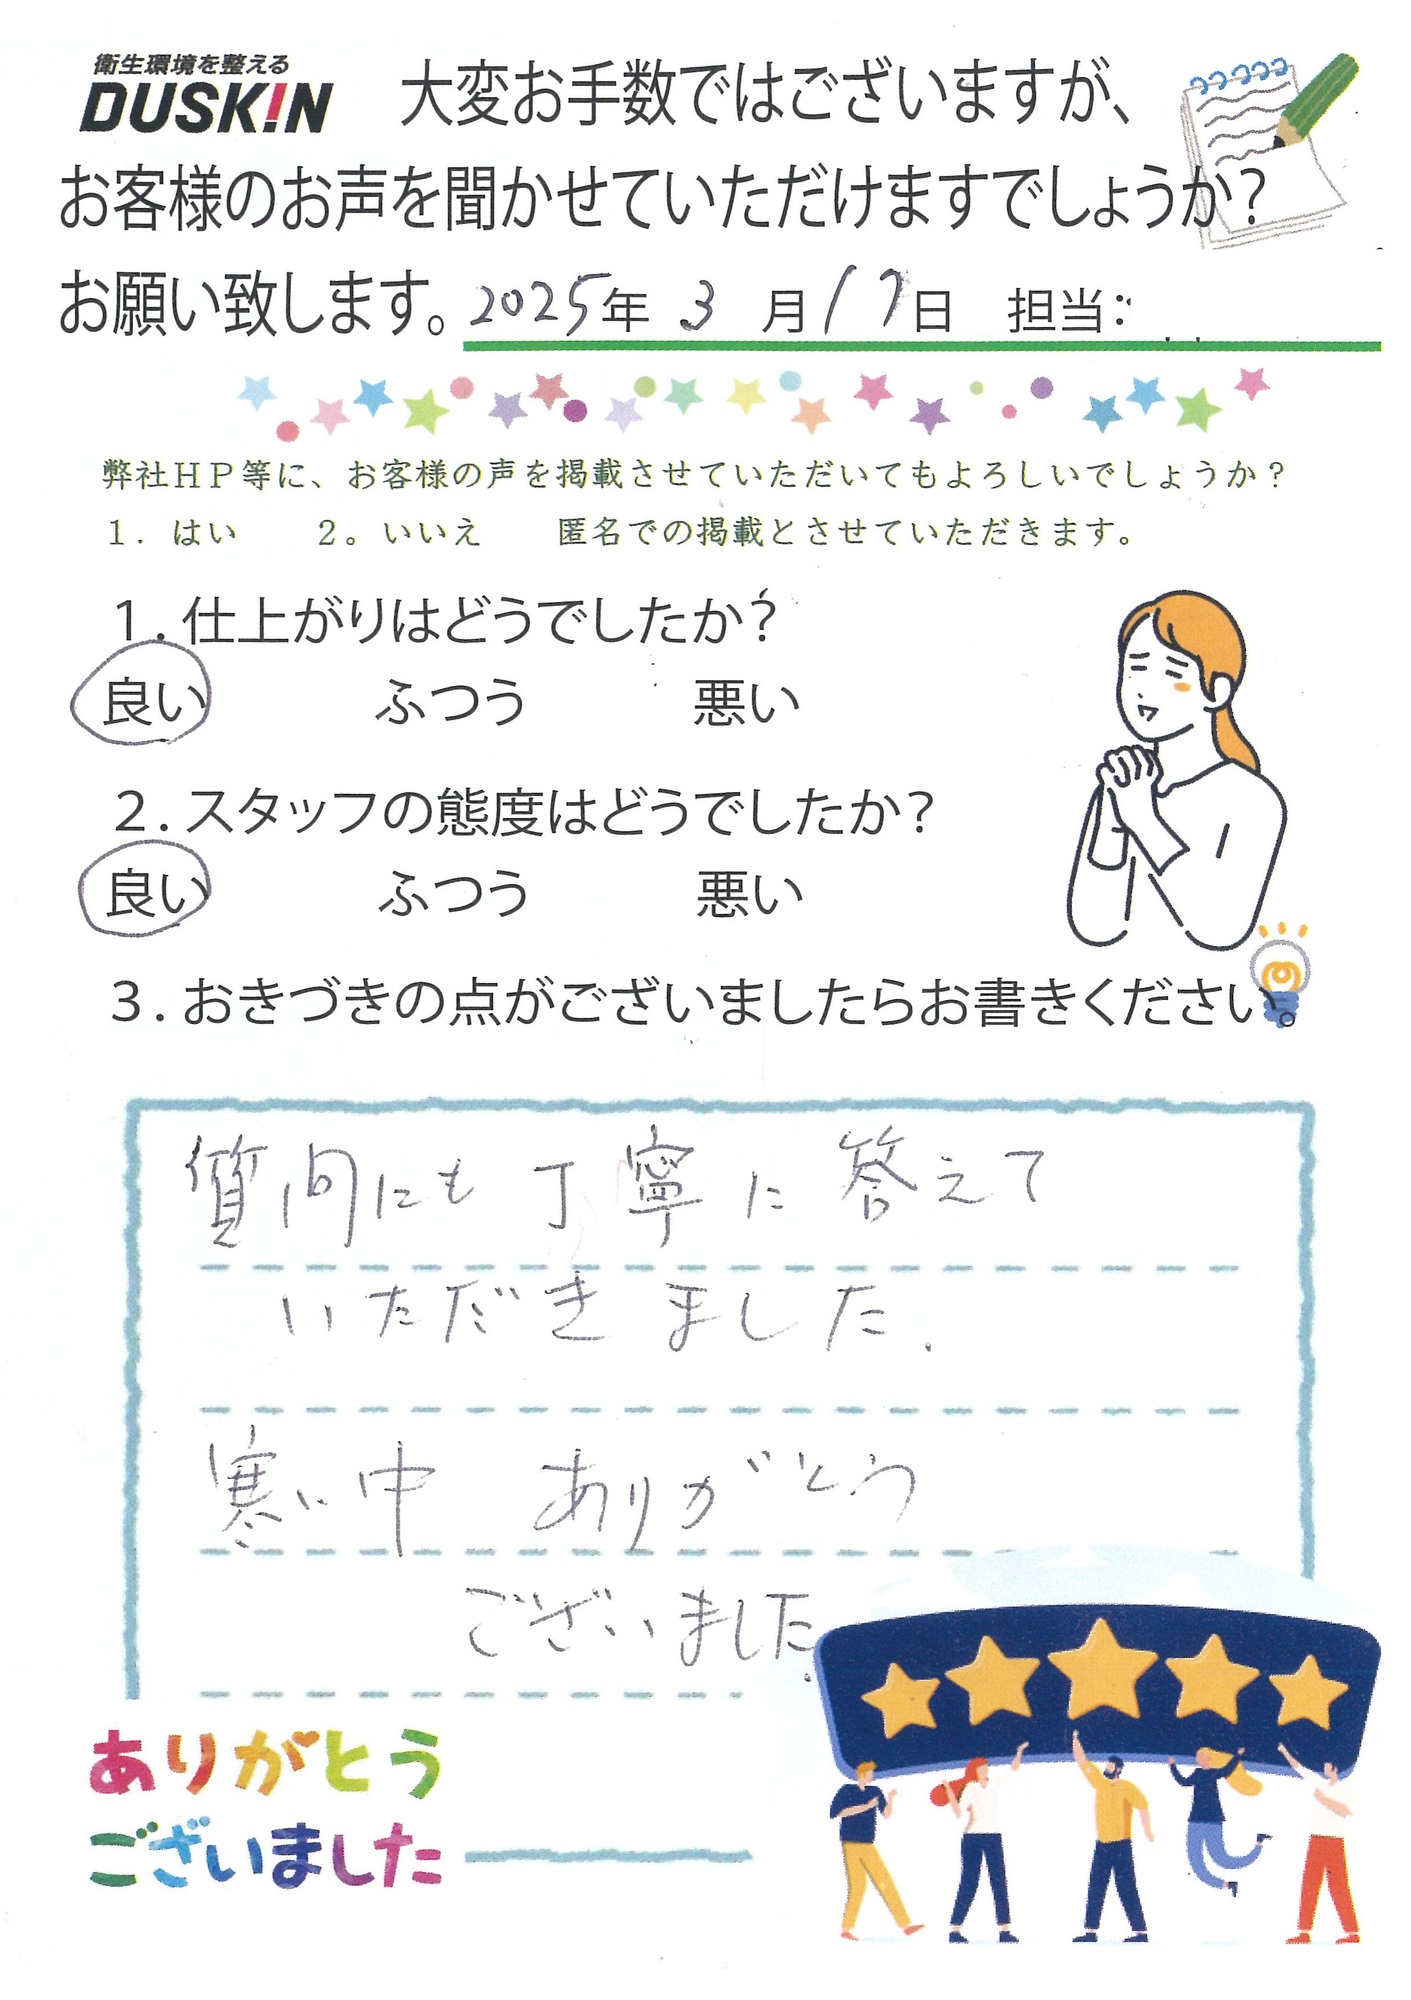 衛生環境を整える
DUSKIN
大変お手数ではございますが、
お客様のお声を聞かせていただけますでしょうか？
お願い致します。2025年 3 月 17日 担当：
弊社ＨＰ等に、お客様の声を掲載させていただいてもよろしいでしょうか？
１．はい　２。いいえ　匿名での掲載とさせていただきます。
１．仕上がりはどうでしたか？
良い　ふつう　悪い
２．スタッフの態度はどうでしたか？
良い　ふつう　悪い
３．おきづきの点がございましたらお書きください。
質問にも丁寧に答えて
いただきました.
寒い中 ありがとう
ございました.
ありがとう
ございました